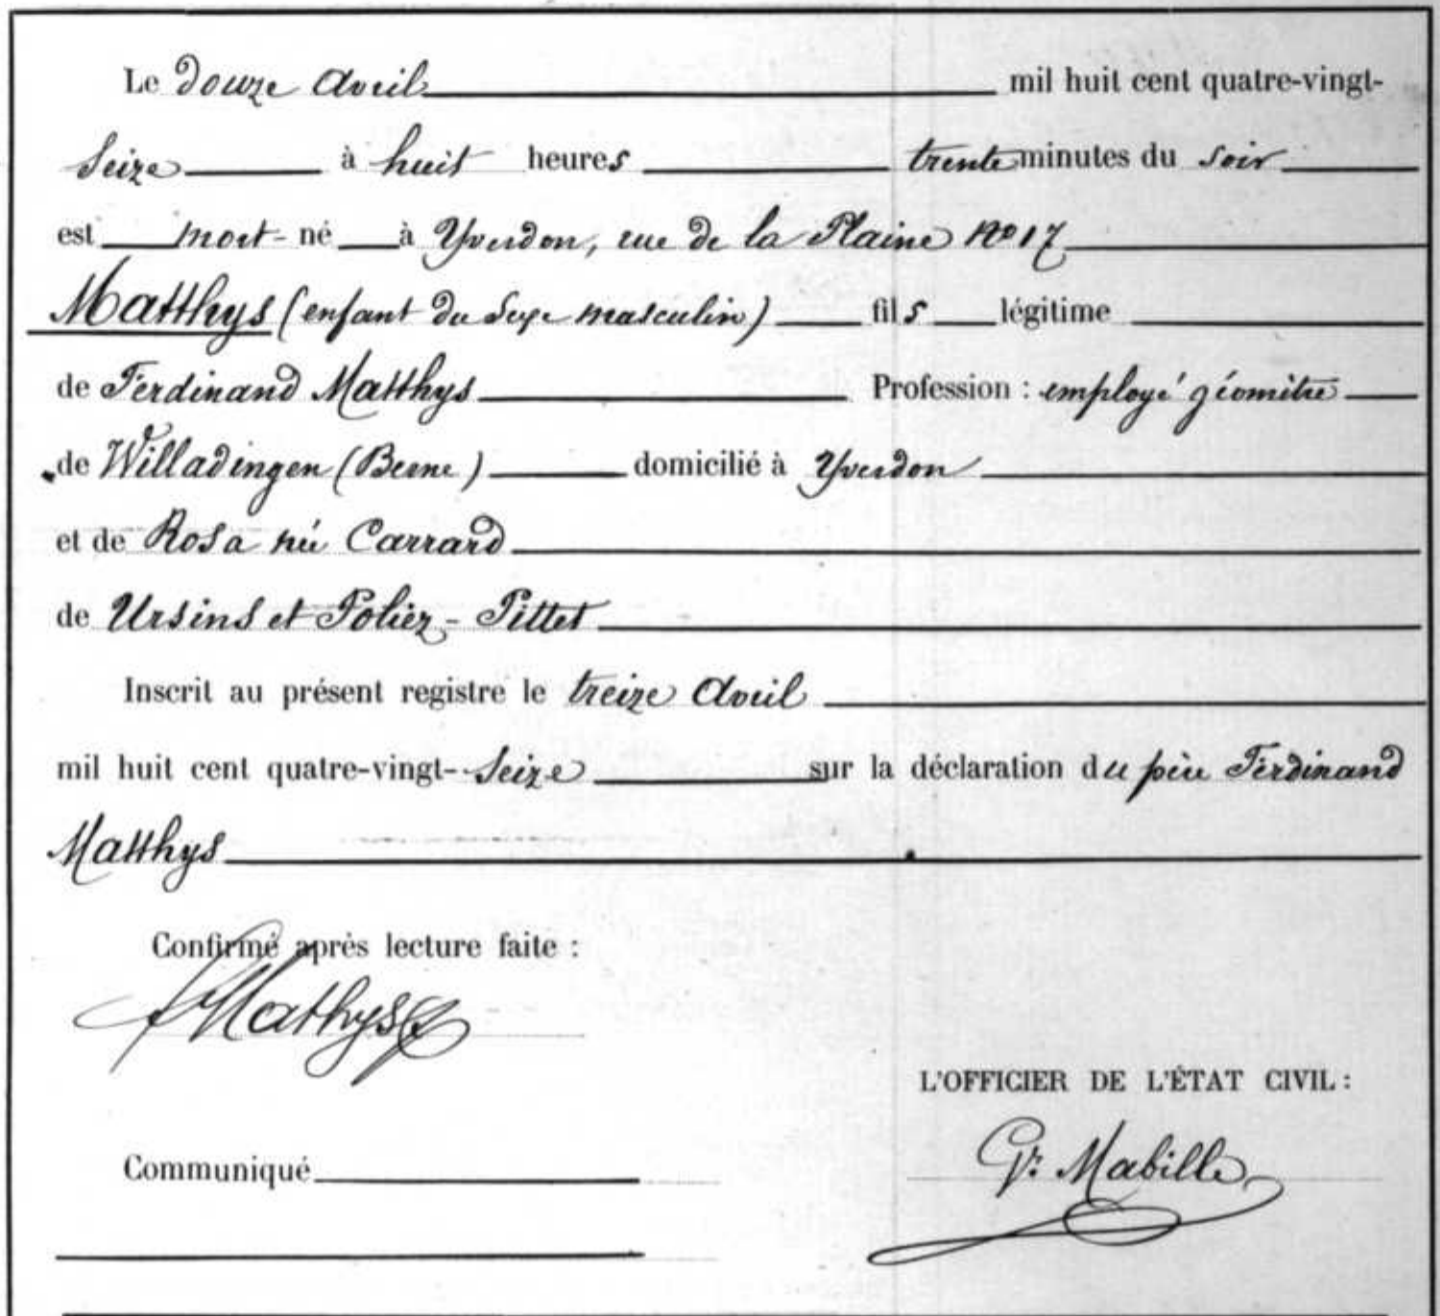 Le douze Avril mil huit cent quatre-vingt-
Seize à huit heures trente minutes du soir
est mort-né à Yverdon, rue de la Plaine No 17
Matthys (enfant du Sexe masculin) fils légitime
de Ferdinand Matthys Profession : employé géomètre
de Willadingen (Berne) domicilié à Yverdon
et de Rosa née Carrard
de Ursins et Poliez-Pittet
Inscrit au présent registre le treize Avril
mil huit cent quatre-vingt-Seize sur la déclaration du père Ferdinand
Matthys
Confirmé après lecture faite :
Mathys
L'OFFICIER DE L'ÉTAT CIVIL :
Communiqué
Mabille